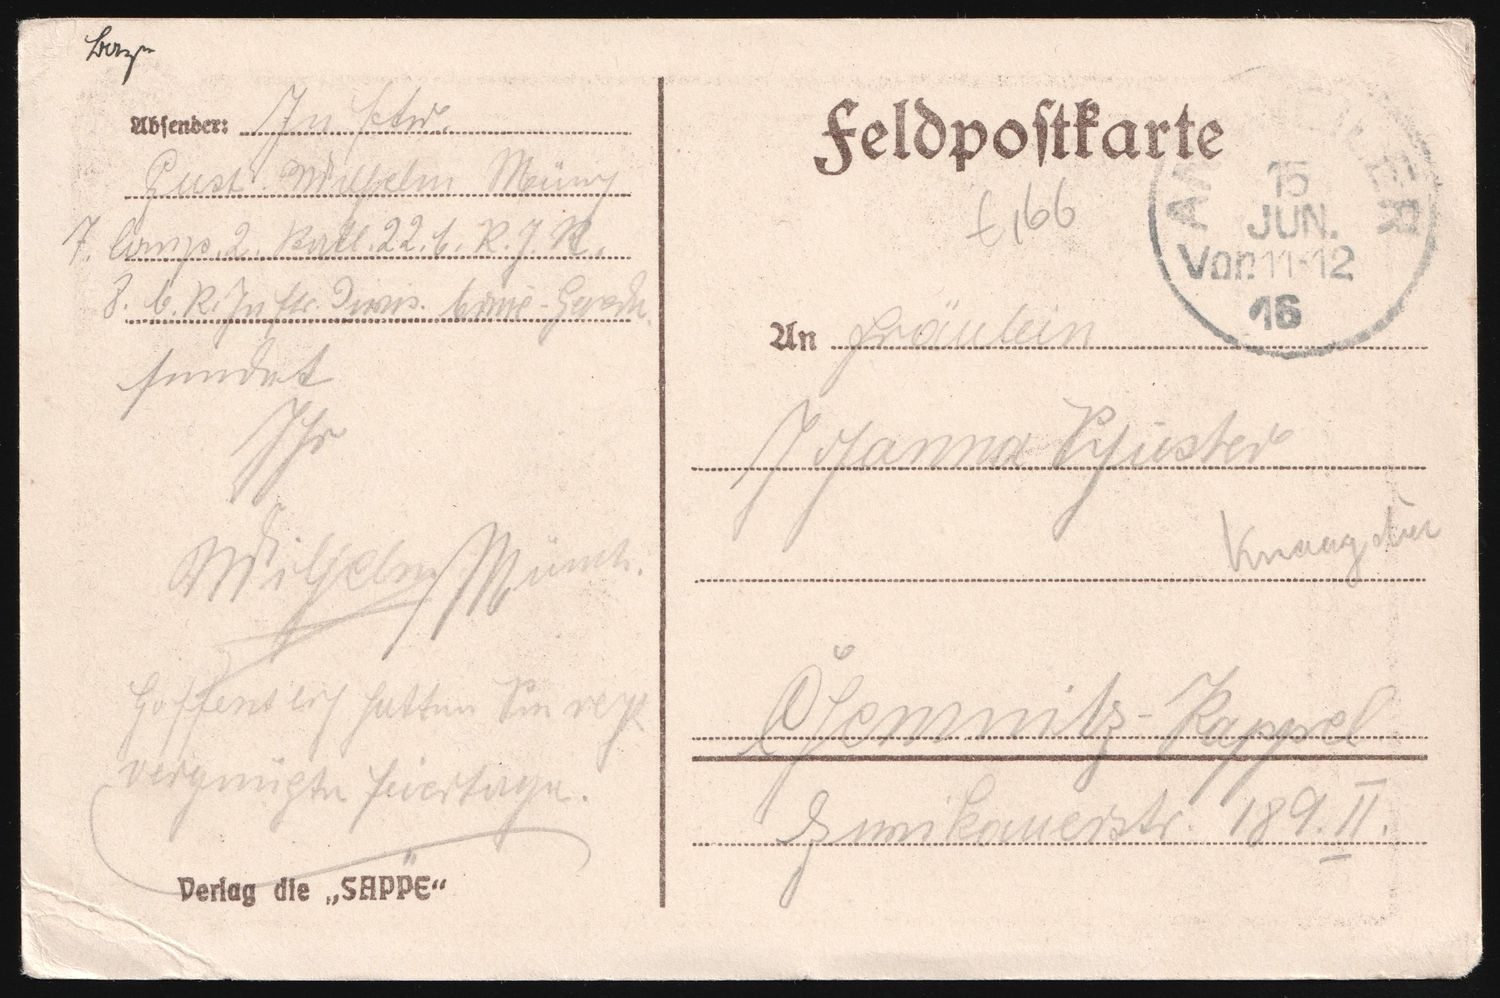 Absender: Inftr.
Gust. Wilhelm Münch
7. Comp. 2. Batl. 22. b. R. I. R.
8. b. R. Inftr. Divis.
sendet
Ihr
Wilhelm Münch.
Hoffentlich hatten Sie recht
vergnügte Feiertage.
Verlag die „SAPPE“
Feldpostkarte
15
JUN.
Vor. 11-12
16
An Fräulein
Johanna Schuster
Chemnitz-Kappel
Zwickauerstr. 189. II.